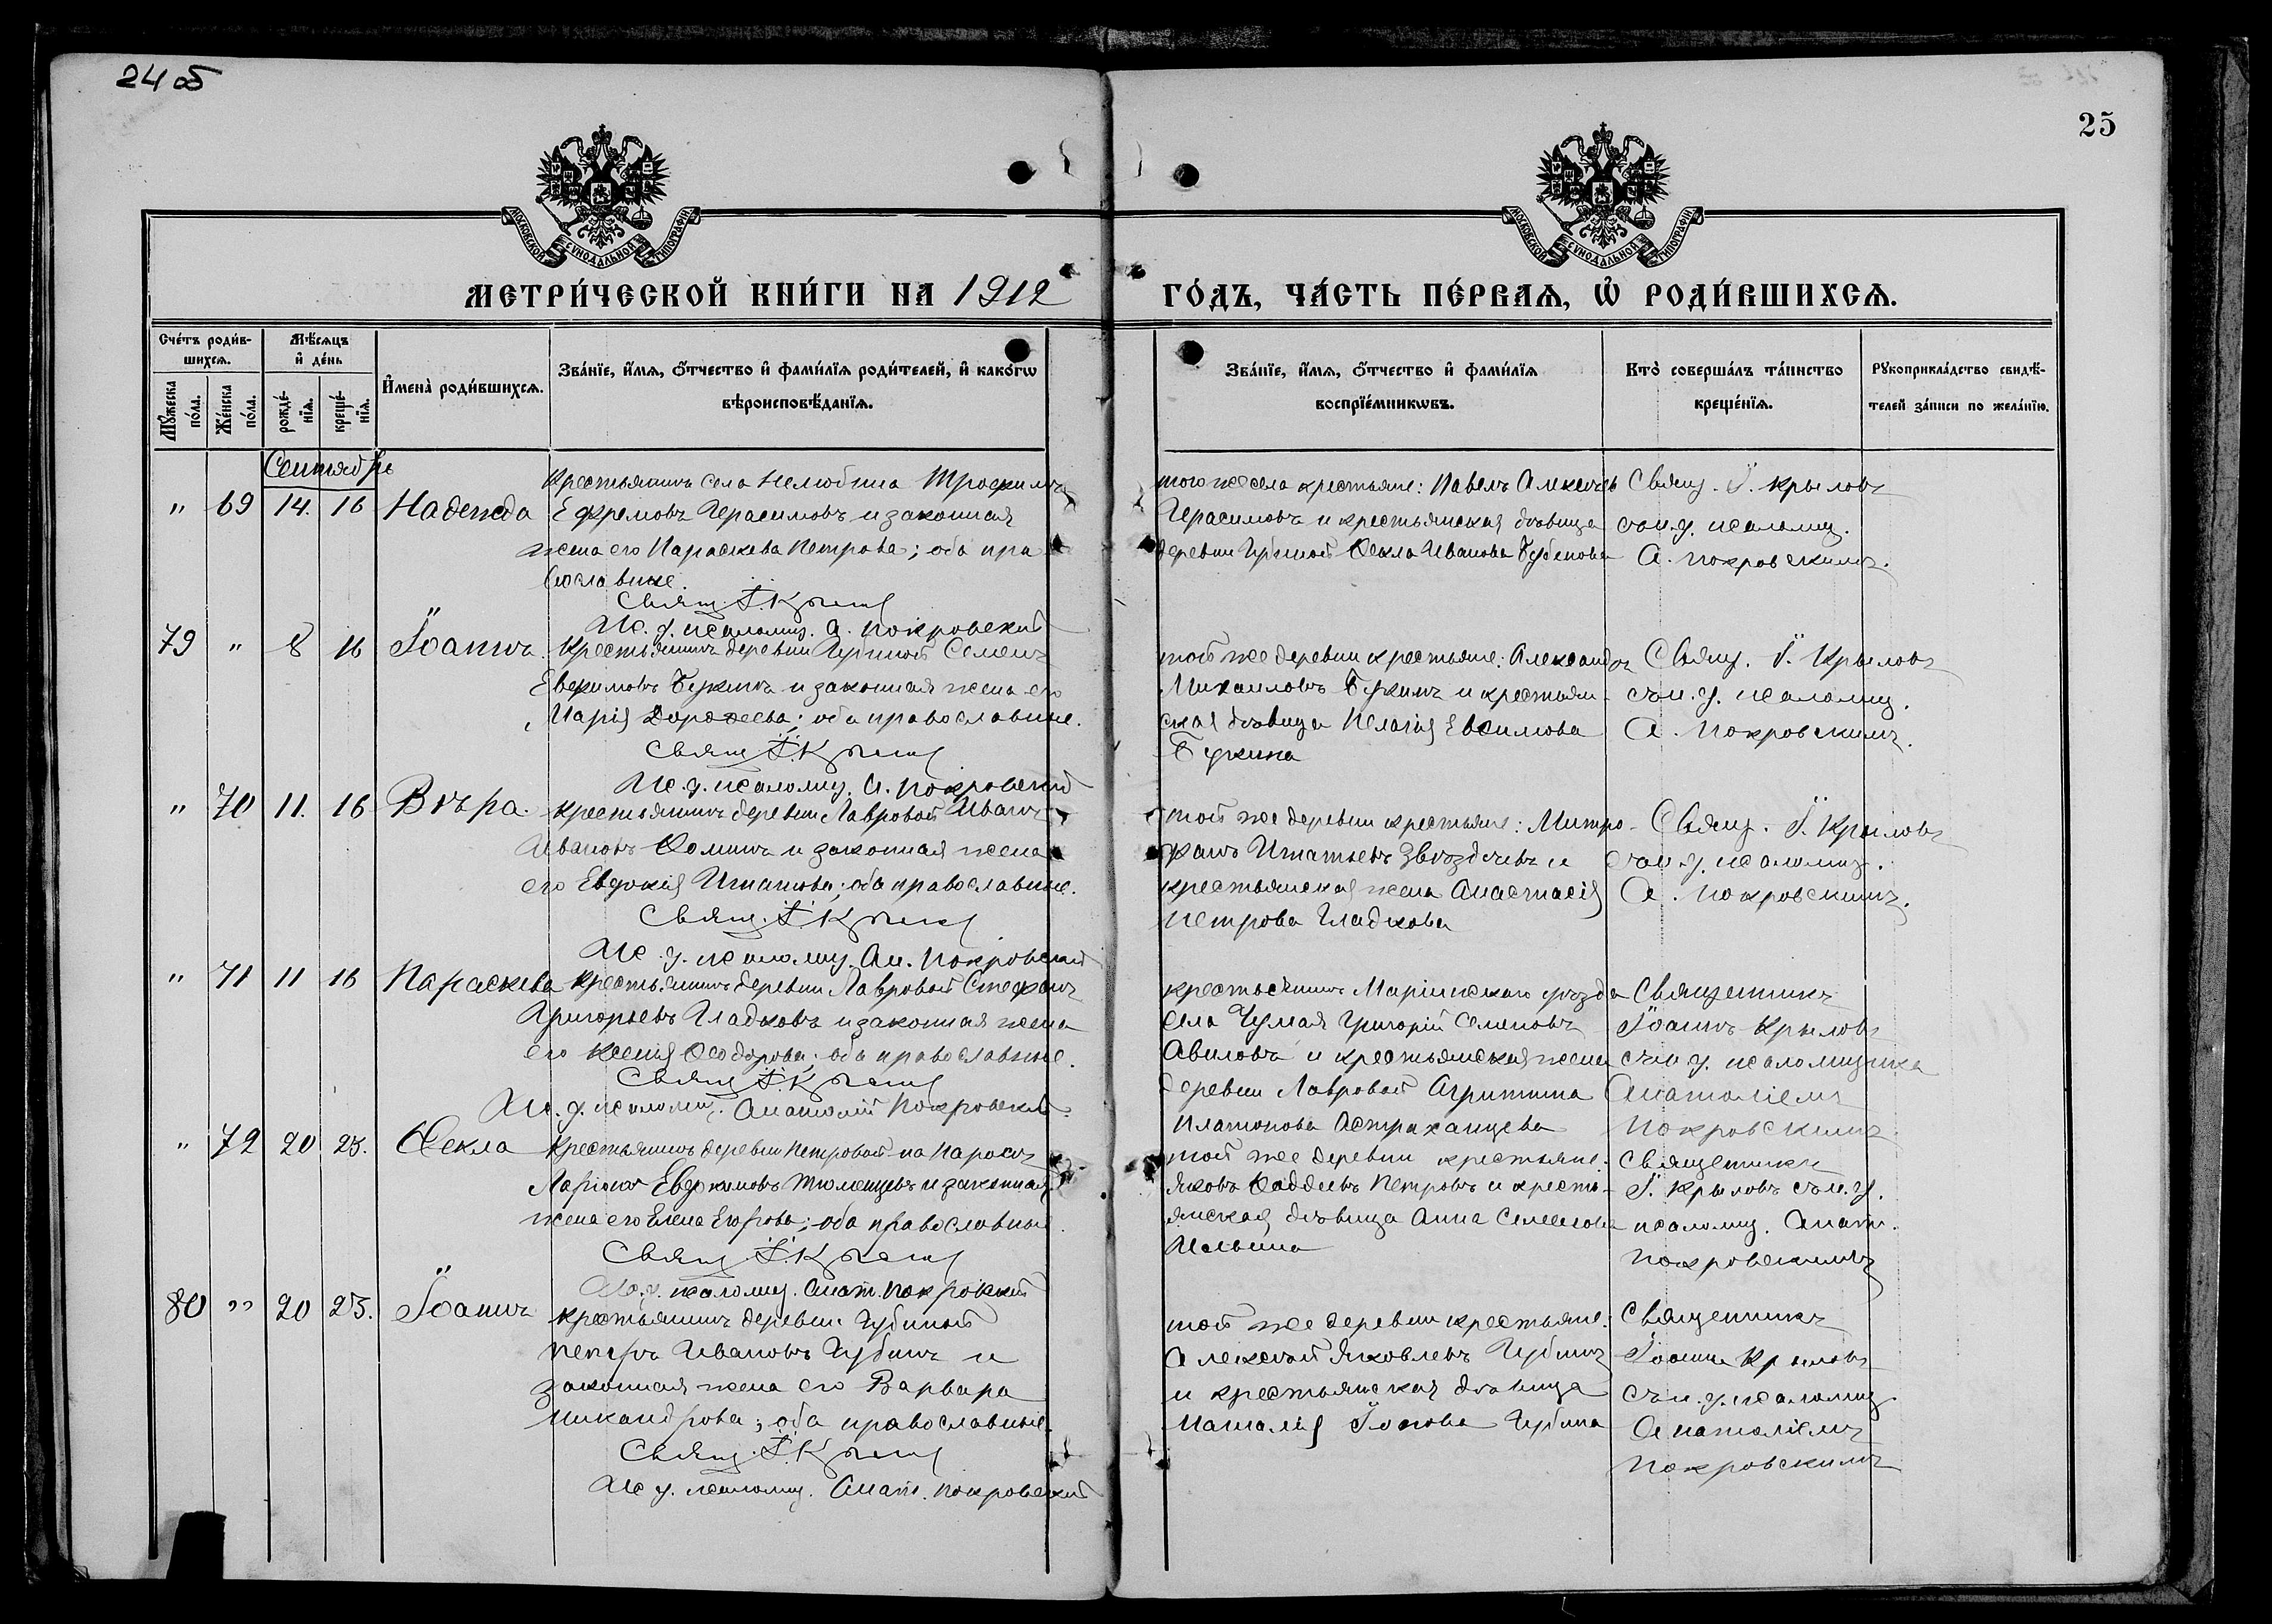 24 об
25
МОСКОВСКОЙ СѴНОДАЛЬНОЙ ТИПОГРАФІИ
МОСКОВСКОЙ СѴНОДАЛЬНОЙ ТИПОГРАФІИ
МЕТРИ́ЧЕСКОЙ КНИ́ГИ НА 1912
ГО́ДЪ, ЧА́СТЬ ПЕ́РВАЯ, Ѡ҆ РОДИ́ВШИХСЯ.
Сче́тъ роди́в-
шихся.
Мꙋ́жеска по́ла.
Же́нска по́ла.
Мѣ́сяцъ
и҆ де́нь
рожде́-
нїя.
креще́-
нїя.
И҆мена̀ роди́вшихся.
Зва́нїе, и҆́мя, ѻ҆́тчество и҆ фами́лїя роди́телей, и҆ како́гѡ
вѣроисповѣ́данїя.
Зва́нїе, и҆́мя, ѻ҆́тчество и҆ фами́лїя
воспрїе́мникѡвъ.
Кто̀ соверша́лъ та́инство
креще́нїя.
Рꙋкоприкла́дство свидѣ́-
телей за́писи по жела́нїю.
Сентябрь
" 69 14. 16 Надежда
Крестьянинъ села Нелюбина Трофимъ
Ефремовъ Герасимовъ и законная
жена его Параскева Петрова; оба пра
вославные.
Свящ. І. Крылов
Ис. д. псаломщ. А. Покровскій
того же села крестьяне: Павелъ Алексѣевъ
Герасимовъ и крестьянская дѣвица
деревни Губиной Ѳекла Иванова Бубенова
Свящ. І. Крыловъ
съ и. д. псаломщ.
А. Покровскимъ.
79 " 8 16 Іоаннъ
Крестьянинъ деревни Губиной Семенъ
Евфимовъ Букинъ и законная жена его
Марія Дороѳеева; оба православные.
Свящ. І. Крылов
Ис. д. псаломщ. А. Покровскій
той же деревни крестьяне: Александръ
Михаиловъ Букинъ и крестьян-
ская дѣвица Пелагія Евфимова
Букина
Свящ. І. Крыловъ
съ и. д. псаломщ.
А. Покровскимъ.
" 70 11. 16 Вѣра.
Крестьянинъ деревни Лавровой Иванъ
Ивановъ Ѳоминъ и законная жена
его Евдокія Игнатова; оба православные.
Свящ. І. Крылов
Ис. д. псаломщ. Ан. Покровскій
той же деревни крестьяне: Митро-
фанъ Игнатьевъ Звѣздочевъ и
крестьянская жена Анастасія
Петрова Гладкова
Свящ. І. Крыловъ
съ и. д. псаломщ.
А. Покровскимъ.
" 71 11 16 Параскева
Крестьянинъ деревни Лавровой Стефанъ
Григорьевъ Гладковъ и законная жена
его Ксенія Ѳеодорова; оба православные.
Свящ. І. Крылов
Ис. д. псаломщ. Анатолій Покровскій
крестьянинъ Маріинскаго уѣзда
села Чумая Григорій Семеновъ
Авиловъ и крестьянская жена
деревни Лавровой Агрипина
Платонова Астраханцева
Священникъ
Іоаннъ Крыловъ
съ и. д. псаломщика
Анатоліемъ
Покровскимъ
" 72 20 23. Ѳекла
Крестьянинъ деревни Петровой на Паросѣ
Ларіонъ Евфимовъ Тюменцевъ и законная
жена его Елена Егорова; оба православные.
Свящ. І. Крылов
Ис. д. псаломщ. Анат. Покровскій
той же деревни крестьяне:
Яковъ Ѳаддеевъ Петровъ и кресть-
янская дѣвица Анна Семенова
Ильина
Священникъ
І. Крыловъ съ и. д.
псаломщ. Анат.
Покровскимъ
80 " 20 23. Іоаннъ
Крестьянинъ деревни Губиной
Петръ Ивановъ Губинъ и
законная жена его Варвара
Никандрова; оба православные.
Свящ. І. Крылов
Ис. д. псаломщ. Анат. Покровскій
той же деревни крестьяне:
Алексѣй Яковлевъ Губинъ
и крестьянская дѣвица
Наталія Іонова Губина
Священникъ
Іоаннъ Крыловъ
съ и. д. псаломщ.
Анатоліемъ
Покровскимъ